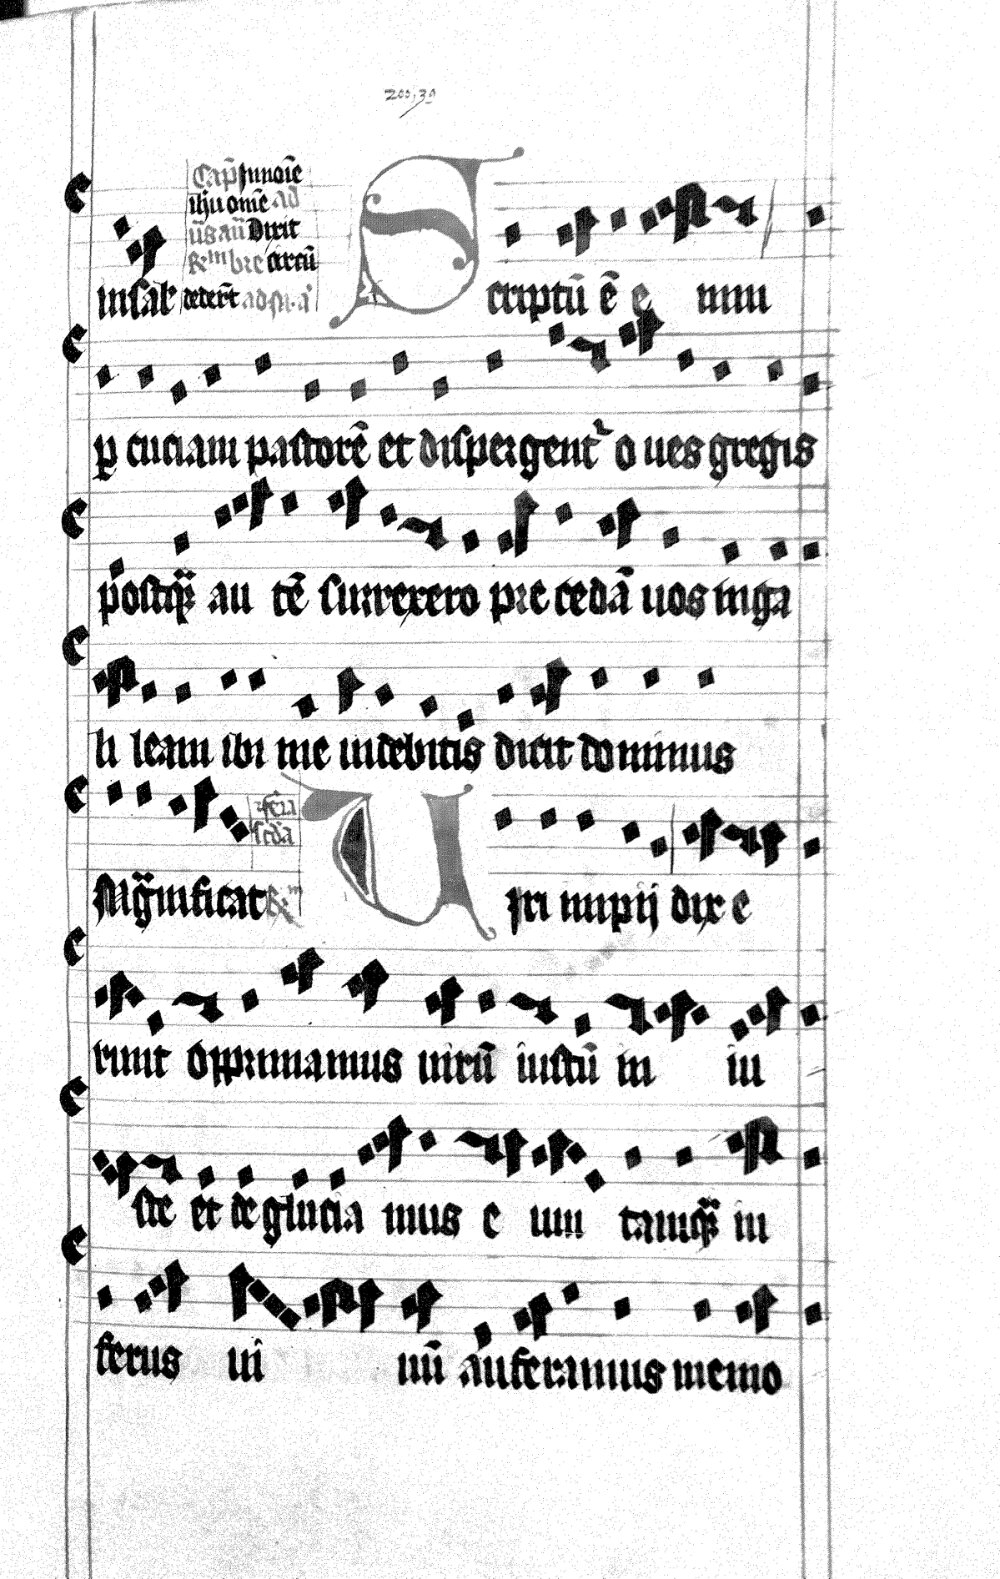 200,39
Cap̄ Jn noīe
ih̄u om̄e ad
ūs an̄ Dixit
&m bre circū
insāb dederūt ad
Scriptū ē e nim
p̱ cuciam pastorē et dispergentr o ues gregis
postq̄ȝ au tē surrexero pre cedā uos in ga
li leam ibi me uidebitis dicit dominus
feria
sc̄da
Mḡnificat &m Uiri impij dix e
runt opprimamus uirū iustū in iu
ste et de glucia mus e um tamq̄ȝ in
fernus ui uū auferamus memo